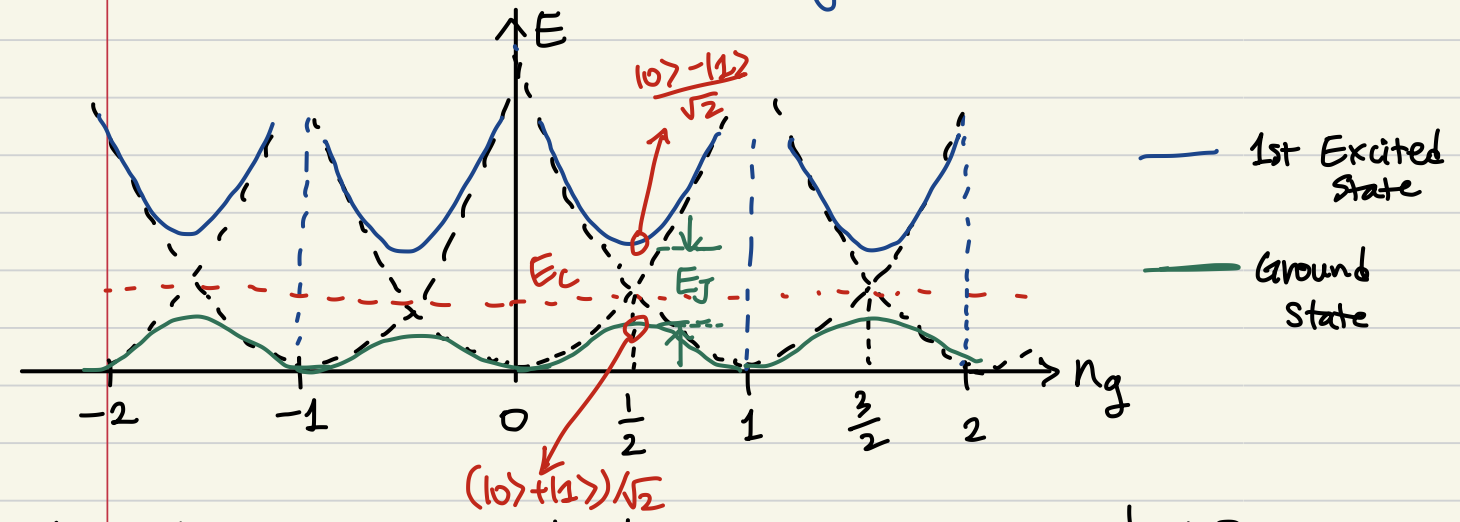 E
|0⟩-|1⟩
√2
1st Excited
state
E_C
E_J
Ground
state
-2 -1 0 1/2 1 3/2 2 n_g
(|0⟩+|1⟩)/√2